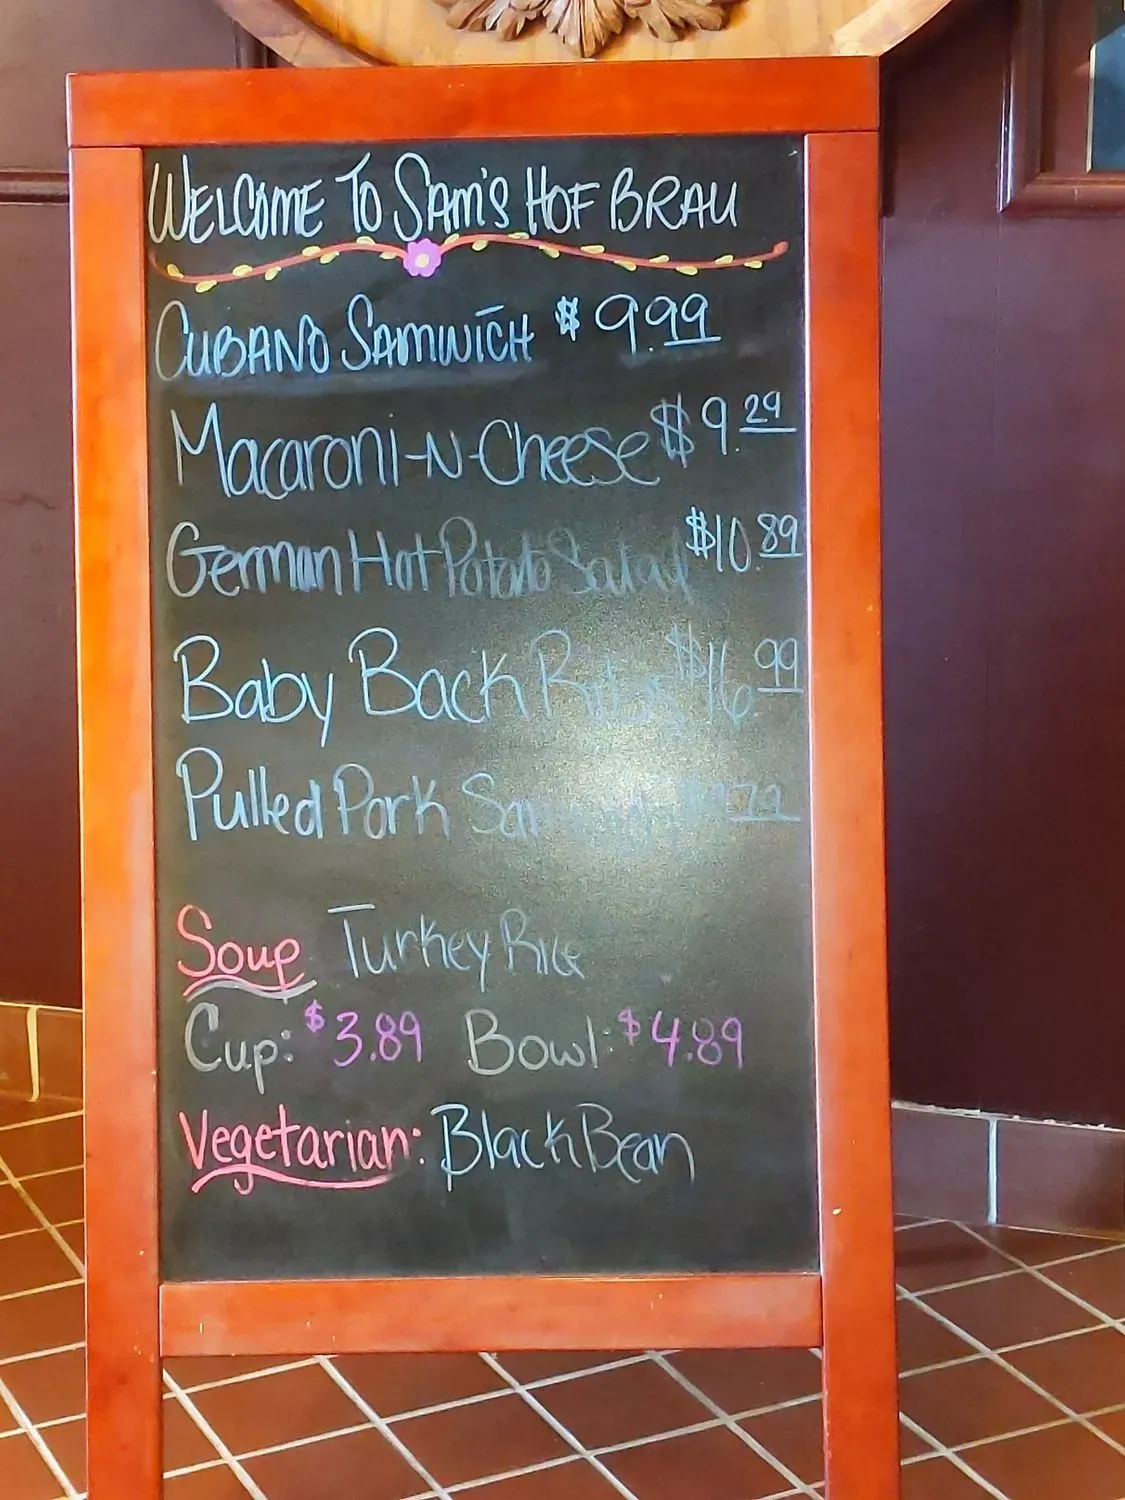 WELCOME TO SAM'S HOF BRAU
CUBANO SAMWICH $9.99
Macaroni-N-Cheese $9.29
German Hot Potato Salad $10.89
Baby Back Ribs $16.99
Pulled Pork
Soup Turkey Rice
Cup: $3.89 Bowl: $4.89
Vegetarian: Black Bean